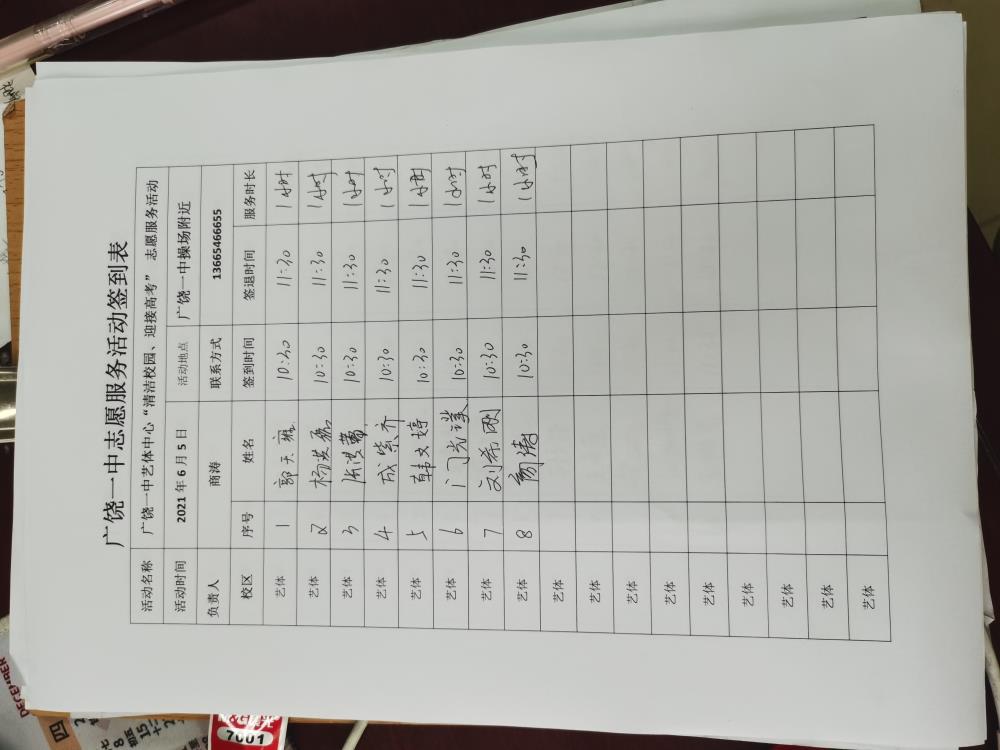 广饶一中志愿服务活动签到表
活动名称 广饶一中艺体中心“清洁校园、迎接高考” 志愿服务活动
活动时间 2021 年 6 月 5 日 活动地点 广饶一中操场附近
负责人 商涛 联系方式 13665466655
校区 序号 姓名 签到时间 签退时间 服务时长
艺体 1 郭天 10:30 11:30 1小时
艺体 2 杨 10:30 11:30 1小时
艺体 3 张洪蕾 10:30 11:30 1小时
艺体 4 成紫齐 10:30 11:30 1小时
艺体 5 韩文婷 10:30 11:30 1小时
艺体 6 门光璞 10:30 11:30 1小时
艺体 7 刘希刚 10:30 11:30 1小时
艺体 8 商涛 10:30 11:30 1小时
艺体
艺体
艺体
艺体
艺体
艺体
艺体
艺体
艺体
DECEMBER
四
7001